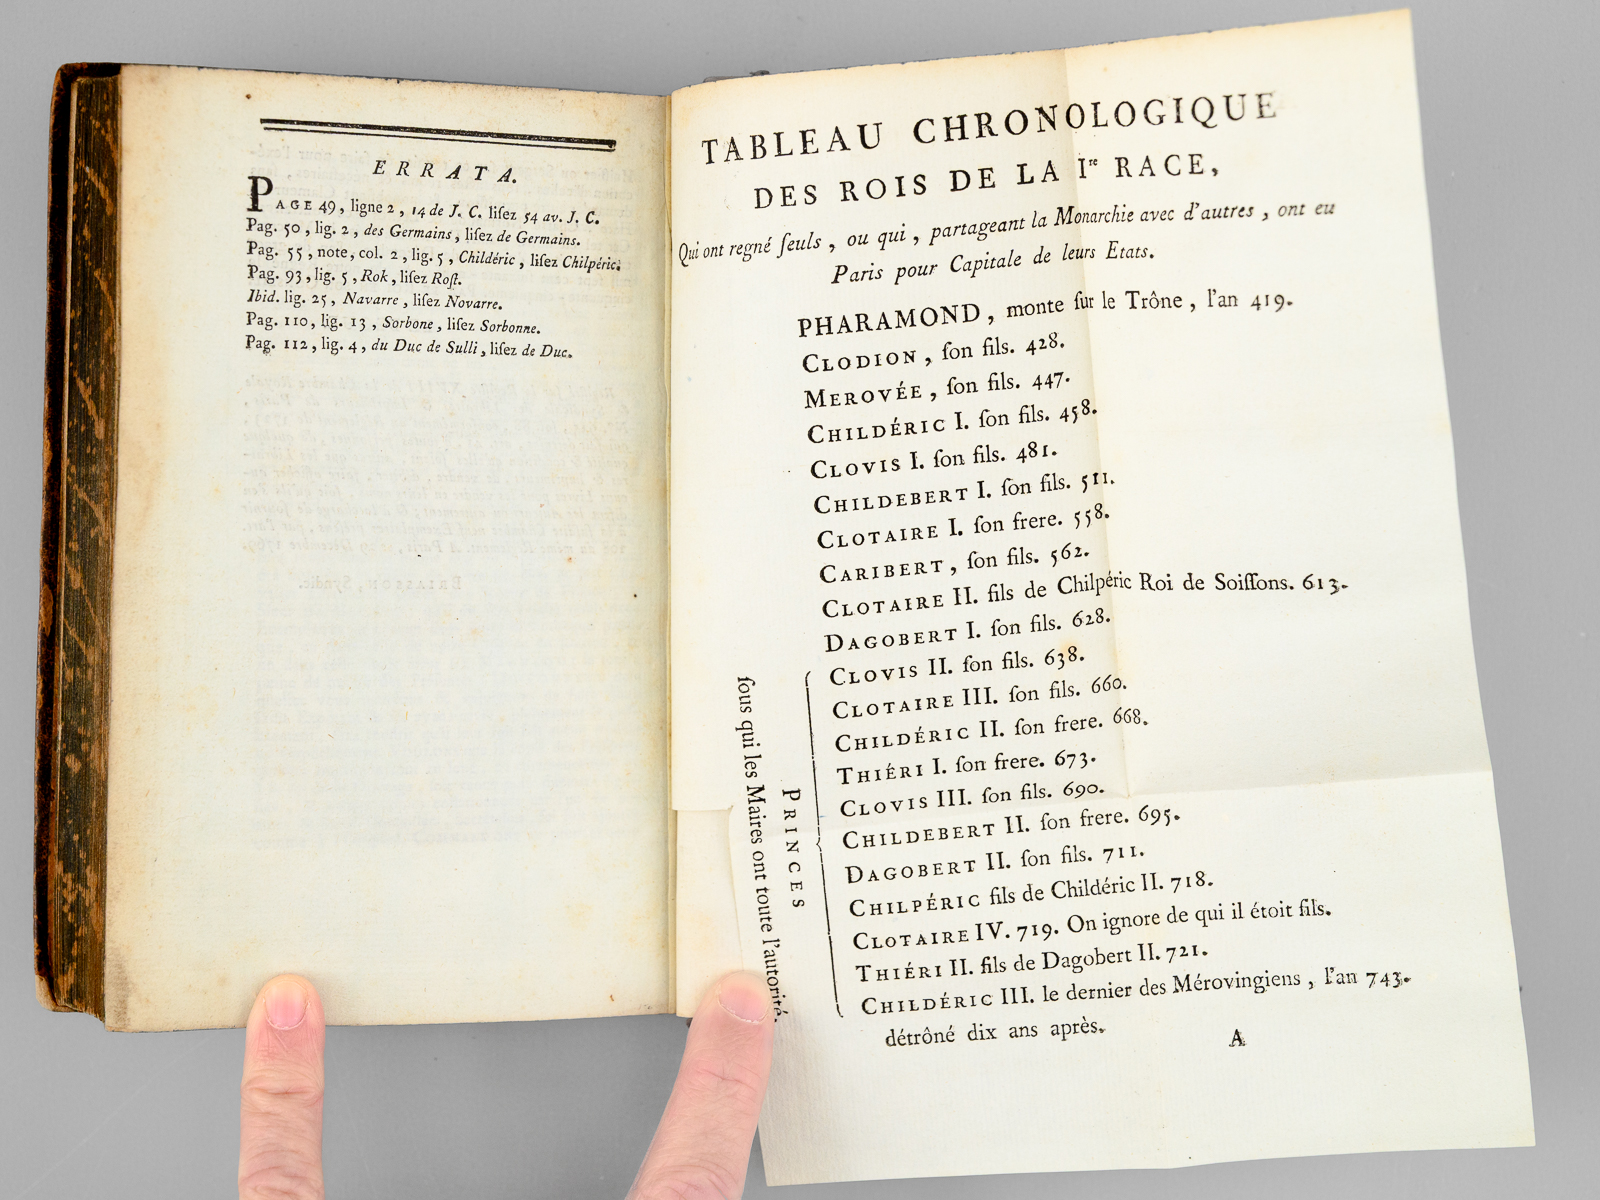 ERRATA.
PAGE 49, ligne 2, 14 de J. C. liſez 54 av. J. C.
Pag. 50, lig. 2, des Germains, liſez de Germains.
Pag. 55, note, col. 2, lig. 5, Childéric, liſez Chilpéric.
Pag. 93, lig. 5, Rok, liſez Roſt.
Ibid. lig. 25, Navarre, liſez Novarre.
Pag. 110, lig. 13, Sorbone, liſez Sorbonne.
Pag. 112, lig. 4, du Duc de Sulli, liſez de Duc.
TABLEAU CHRONOLOGIQUE
DES ROIS DE LA Ire RACE,
Qui ont regné ſeuls, ou qui, partageant la Monarchie avec d'autres, ont eu
Paris pour Capitale de leurs Etats.
PHARAMOND, monte ſur le Trône, l'an 419.
CLODION, ſon fils. 428.
MEROVÉE, ſon fils. 447.
CHILDÉRIC I. ſon fils. 458.
CLOVIS I. ſon fils. 481.
CHILDEBERT I. ſon fils. 511.
CLOTAIRE I. ſon frere. 558.
CARIBERT, ſon fils. 562.
CLOTAIRE II. fils de Chilpéric Roi de Soiſſons. 613.
DAGOBERT I. ſon fils. 628.
PRINCES
ſous qui les Maires ont toute l'autorité.
CLOVIS II. ſon fils. 638.
CLOTAIRE III. ſon fils. 660.
CHILDÉRIC II. ſon frere. 668.
THIÉRI I. ſon frere. 673.
CLOVIS III. ſon fils. 690.
CHILDEBERT II. ſon frere. 695.
DAGOBERT II. ſon fils. 711.
CHILPÉRIC fils de Childéric II. 718.
CLOTAIRE IV. 719. On ignore de qui il étoit fils.
THIÉRI II. fils de Dagobert II. 721.
CHILDÉRIC III. le dernier des Mérovingiens, l'an 743.
détrôné dix ans après.
A